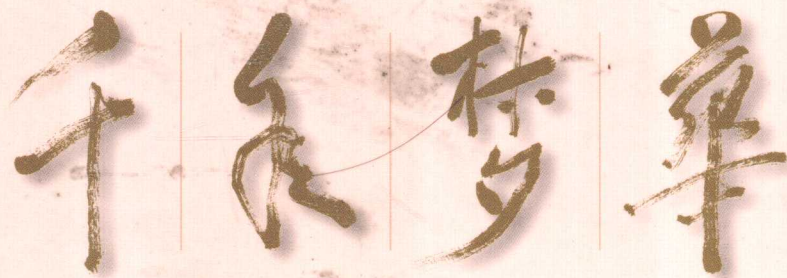 千年梦華